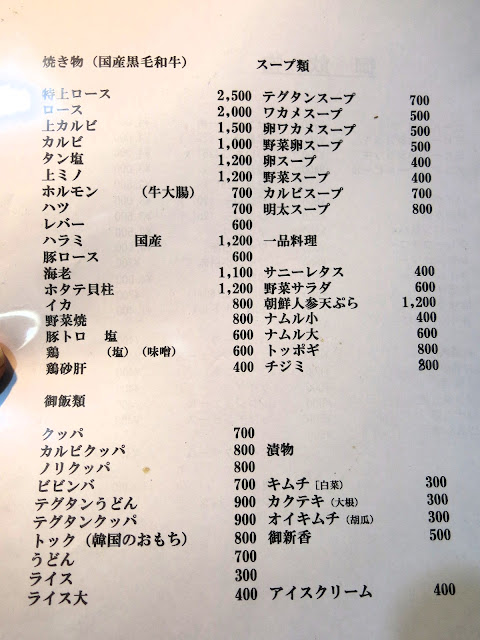 焼き物（国産黒毛和牛）
特上ロース 2,500
ロース 2,000
上カルビ 1,500
カルビ 1,000
タン塩 1,200
上ミノ 1,200
ホルモン （牛大腸） 700
ハツ 700
レバー 600
ハラミ 国産 1,200
豚ロース 600
海老 1,100
ホタテ貝柱 1,200
イカ 800
野菜焼 800
豚トロ 塩 600
鶏 （塩）（味噌） 600
鶏砂肝 400
スープ類
テグタンスープ 700
ワカメスープ 500
卵ワカメスープ 500
野菜卵スープ 500
卵スープ 400
野菜スープ 400
カルビスープ 700
明太スープ 800
一品料理
サニーレタス 400
野菜サラダ 600
朝鮮人参天ぷら 1,200
ナムル小 400
ナムル大 600
トッポギ 800
チジミ 800
御飯類
クッパ 700
カルビクッパ 800
ノリクッパ 800
ビビンバ 700
テグタンうどん 900
テグタンクッパ 900
トック（韓国のおもち） 800
うどん 700
ライス 300
ライス大 400
漬物
キムチ［白菜］ 300
カクテキ（大根） 300
オイキムチ（胡瓜） 300
御新香 500
アイスクリーム 400